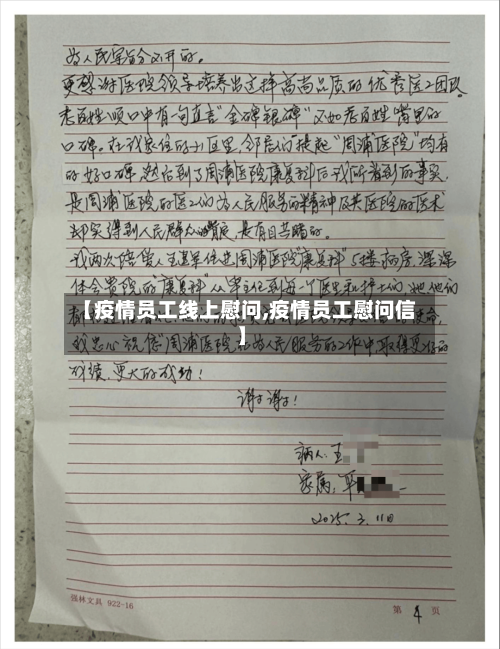 为人民宗旨分不开的。
更想谢医院领导培养出这样高尚品质的优秀医工团队。
老百姓顺口中有一句直言“金碑银碑”不如老百姓嘴里的
口碑。在我居住的小区里,邻居们提起“周浦医院”均有
的好口碑,然后到了周浦医院康复科后我所看到的事实,
是周浦医院的医工们为人民服务的精神及其医院的医术
却实得到人民群众的,是有目共睹的。
我两次陪病人王某某住进周浦医院“康复科”5楼病房,深深
体会贵院的“康复科”从主任到每一个医生和护士们,她他们
【疫情员工线上慰问,疫情员工慰问信
】
我忠心祝愿周浦医院在为人民服务的工作中,取得更好的
成绩,更大的成功!
谢谢谢谢!
病人:王
家属:
2025.3.11日
强林文具 922-16
第 4 页